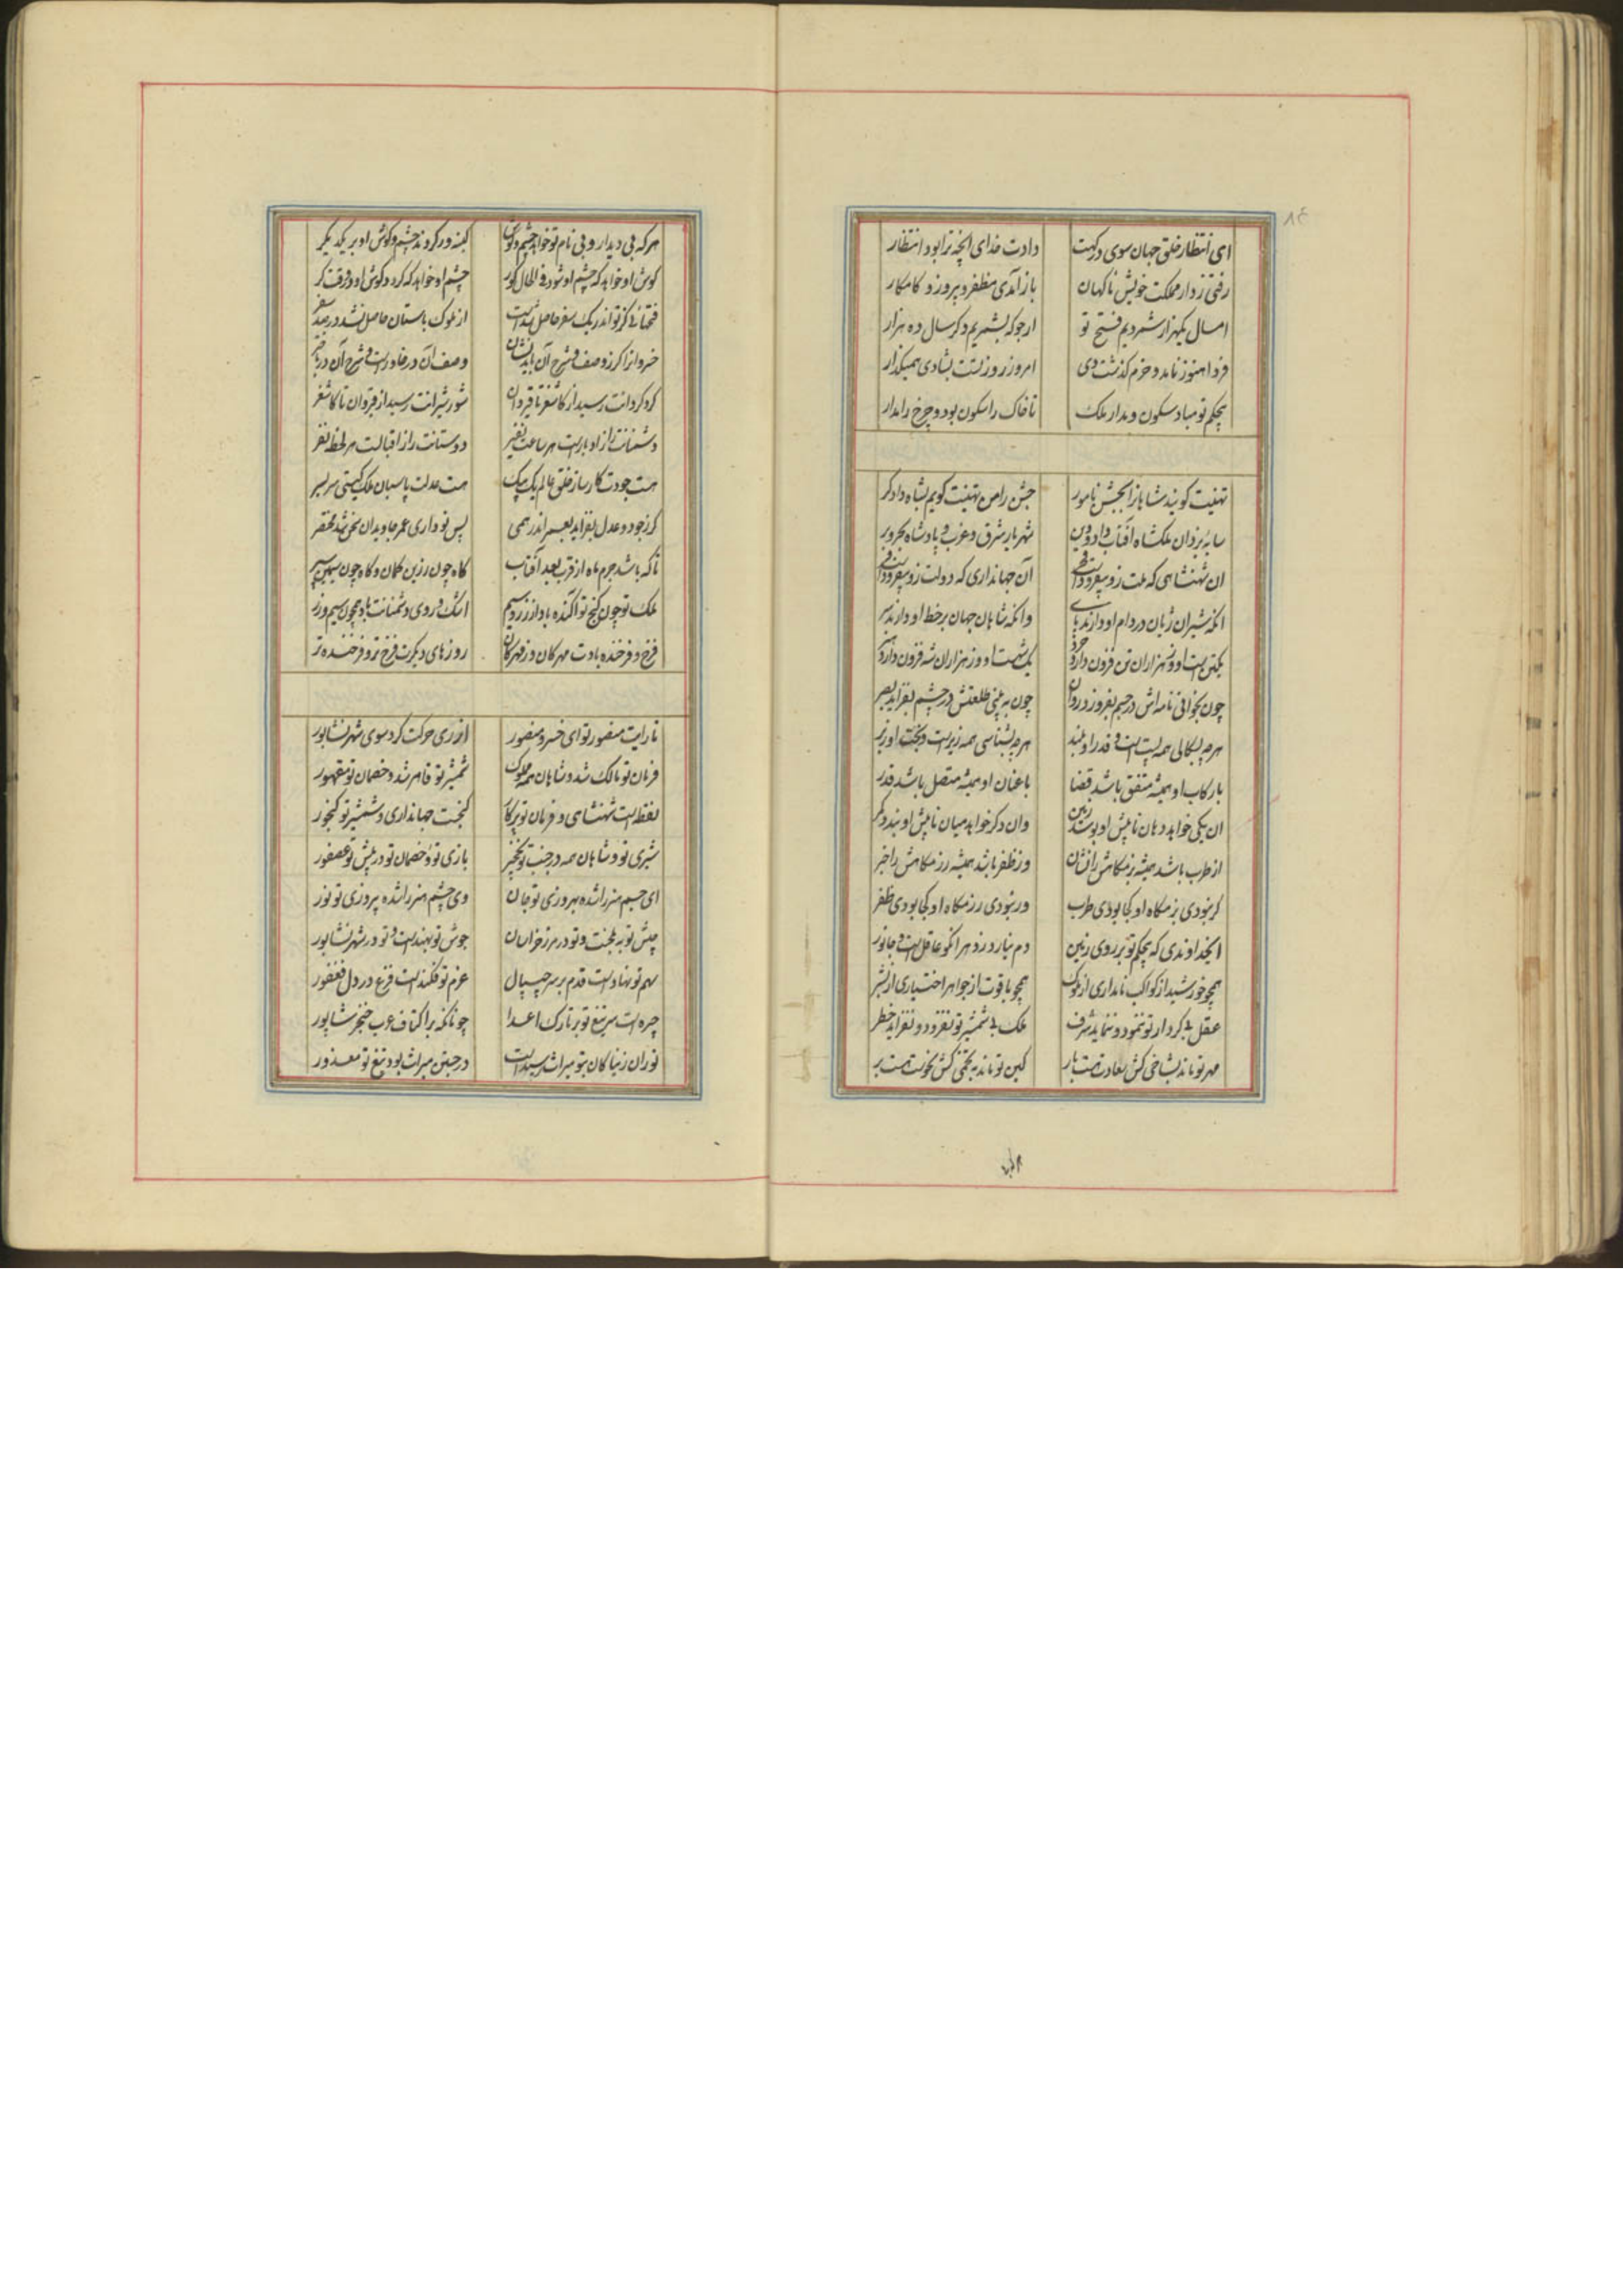 ای انتظار خلق جهان سوی درگهت دادت خدای آنچه ترا بود انتظار
رفتی ز دار مملکت خویش ناگهان باز آمدی مظفر و پیروز و کامکار
امسال یکهزار شمردیم فتح تو ارجو که بشمریم دگر سال ده هزار
فردا هنوز نامد و خرم گذشت دی امروز روز تست بشادی همیگذار
بحکم تو مباد سکون و مدار ملک تا خاک را سکون بود و چرخ را مدار
تهنیت گویند شاهانرا بجشن نامور جشن را من تهنیت گویم بشاه دادگر
سایه یزدان ملکشاه آفتاب داد و دین شهریار شرق و غرب و پادشاه بحر و بر
ان شهنشاهی که ملت زو بیفزود آن جهانداری که دولت زو بیفزود
انکه شیران ژیان در دام او دارند پای وانکه شاهان جهان بر خط او دارند سر
یکتن است او وز هزاران تن فزون دارد خرد یک شه است او وز هزاران شه فزون دارد هنر
چون بخوانی نامه اش در جسم بفروزد روان چون به بینی طلعتش در چشم بفزاید بصر
هر چه بسکالی همه پست است و قدر او بلند هر چه بشناسی همه زیر است و بخت او زبر
با رکاب او همیشه متفق باشد قضا با عنان او همیشه متصل باشد قدر
ان یکی خواهد دهان تا پیش او بوسد زمین وان دگر خواهد میان تا پیش او بندد کمر
از طرب باشد همیشه بزمگاهش را نشان وز ظفر باشد همیشه رزمگاهش را خبر
گر نبودی بزمگاه او کجا بودی طرب ور نبودی رزمگاه او کجا بودی ظفر
ایخداوندی که بحکم تو بر روی زمین دم نیارد زد هر انکو عاقل است و جانور
همچو خورشید از کواکب نامداری از ملوک همچو یاقوت از جواهر اختیاری از بشر
عقل بی کردار تو ننمود و ننماید شرف ملک بی شمشیر تو نفزود و نفزاید خطر
مهر تو ماند بشاخی کش سعادت هست بار کین تو ماند بتخمی کش نحوست هست بر
هر که بی دیدار و بی نام تو خواهد چشم و گوش کینه ور گردند چشم و گوش او بر یکدیگر
گوش او خواهد که چشم او شود فی الحال کور چشم او خواهد که گردد گوش او در وقت کر
فتحهائی کز تو اندر یک سفر حاصل شداست از ملوک باستان حاصل نشد در صد سفر
خسروانرا گر ز وصف و شرح آن باید نشان وصف آن در خاور است و شرح آن در باختر
گرد گردانت رسید از کاشغر تا قیروان شور شیرانت رسید از قیروان تا کاشغر
دشمنانت را ز ادبار است هر ساعت نفیر دوستانت را ز اقبالت هر لحظه نفر
هست جودت کارساز خلق عالم یک بیک هست عدلت پاسبان ملک گیتی سر بسر
گر ز جود و عدل بفزاید بعمر اندر همی پس تو داری عمر جاویدان سخن شد مختصر
تا که باشد جرم ماه از قرب و بعد آفتاب گاه چون زرین کمان و گاه چون سیمین سپر
ملک تو چون گنج تو آکنده باد از زر و سیم اشک و روی دشمنانت باد همچون سیم و زر
فرخ و فرخنده بادت مهرگان وز مهرگان روزهای دیگرت فرخ تر و فرخنده تر
تا رایت منصور تو ای خسرو منصور از ری حرکت کرد سوی شهر نشابور
فرمان تو مالک شد و شاهان همه مملوک شمشیر تو قاهر شد و خصمان تو مقهور
نقطه است شهنشاهی و فرمان تو پرگار گنجست جهانداری و شمشیر تو گنجور
شیری تو و شاهان همه در جنب تو نخجیر بازی تو و خصمان تو در پیش تو عصفور
ای جسم هنر را شده بهروزی تو جان وی چشم هنر را شده پیروزی تو نور
جیش تو به بلخست و تو در مرز خراسان جوش تو بهند است و تو در شهر نشابور
سهم تو نهاد است قدم بر سر جیپال عزم تو فکند است فزع در دل فغفور
چیره است سر تیغ تو بر تارک اعدا چونانکه بر اکتاف عرب خنجر شاپور
توران ز نیاکان بتو میراث رسیداست در جستن میراث بود تیغ تو معذور